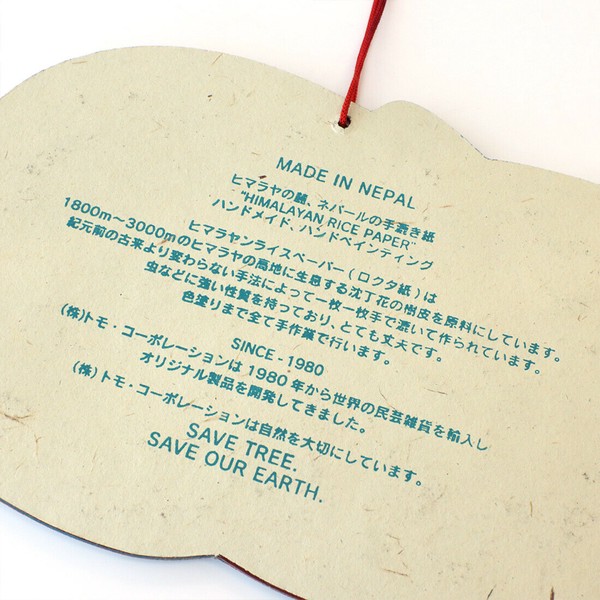 MADE IN NEPAL
ヒマラヤの麓、ネパールの手漉き紙
"HIMALAYAN RICE PAPER"
ハンドメイド、ハンドペインティング
ヒマラヤンライスペーパー(ロクタ紙)は
1800m～3000mのヒマラヤの高地に生息する沈丁花の樹皮を原料にしています。
紀元前の古来より変わらない手法によって一枚一枚手で漉いて作られています。
虫などに強い性質を持っており、とても丈夫です。
色塗りまで全て手作業で行います。
SINCE-1980
(株)トモ・コーポレーションは1980年から世界の民芸雑貨を輸入し
オリジナル製品を開発してきました。
(株)トモ・コーポレーションは自然を大切にしています。
SAVE TREE.
SAVE OUR EARTH.